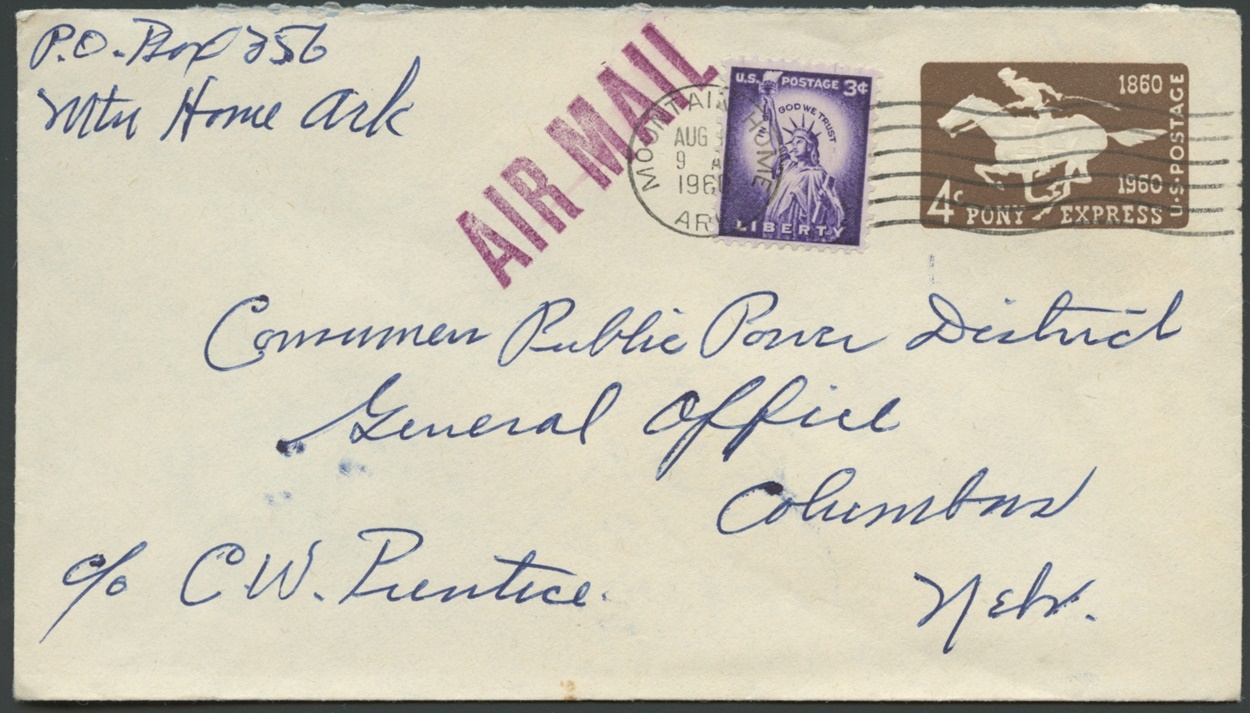 P.O. Box 256
Mtn Home Ark
AIR MAIL
MOUNTAIN HOME
AUG
9 A
1960
ARK
U.S. POSTAGE 3¢
IN GOD WE TRUST
LIBERTY
1860
1960
U.S. POSTAGE
4c PONY EXPRESS
Consumers Public Power District
General Office
Columbus
Nebr.
c/o C.W. Prentice.